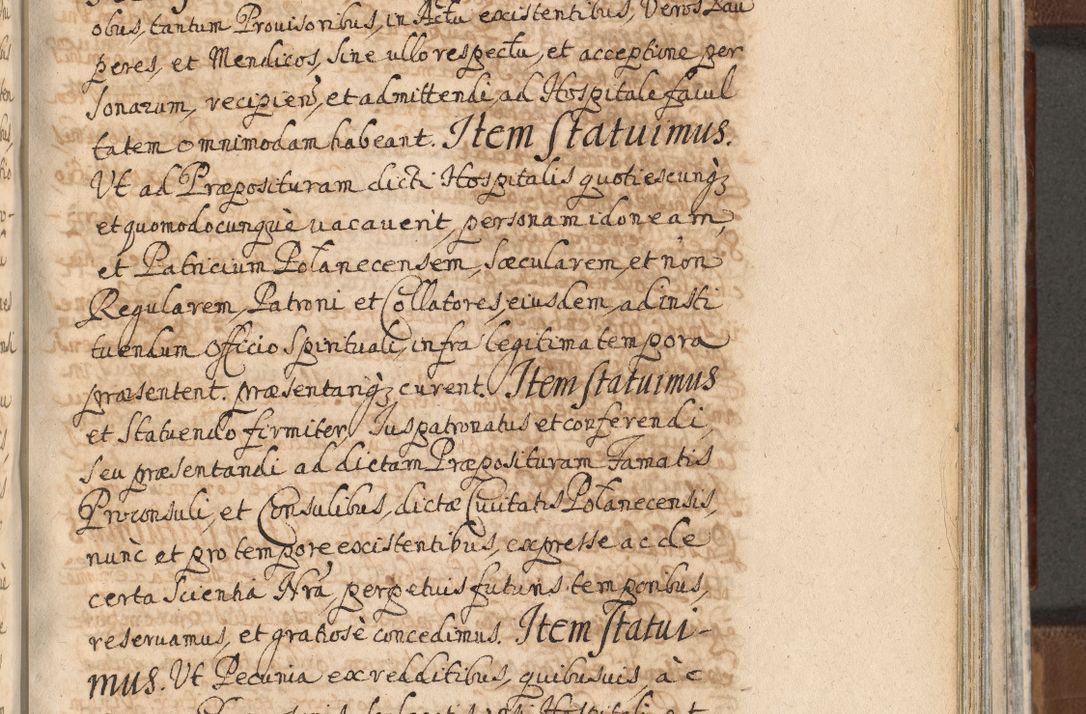 obus, tantum Provisoribus, in Actu existentibus, Veros Pau
peres, et Mendicos, sine ullo respectu, et acceptione per
sonarum, recipiens, et admittendi, ad Hospitale facul
tatem omnimodam habeant. Item Statuimus.
Vt ad Præposituram dicti Hospitalis quotiescunqꝫ
et quomodocunquè vacauerit, personam idoneam,
et Patricium Polanecensem, sæcularem, et non
Regularem, Patroni et Collatores, eiusdem, ad insti
tuendum officio Spirituali, infra legitima tempora
præsentent. præsentariqꝫ curent. Item statuimus
et Statuendo firmiter, Iuspatronatus et conferendi,
seu præsentandi ad dictam Præposituram Famatis
Proconsuli, et Consulibus, dictæ Ciuitatis Polanecensis,
nunc et pro tempore existentibus, expresse ac de
certa scientia Nra, perpetuis futuris temporibus,
reseruamus, et gratiosè concedimus. Item Statui-
mus. Vt Pecunia ex redditibus, quibusuis, à c